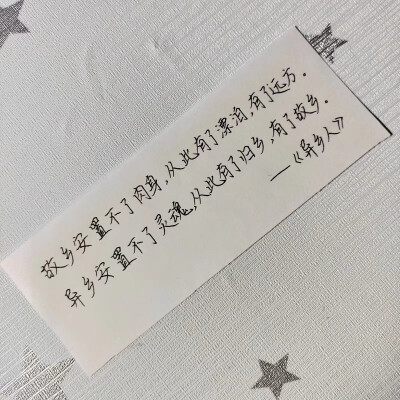 故乡安置不了肉身,从此有了漂泊,有了远方.
异乡安置不了灵魂,从此有了归乡,有了故乡.
——《异乡人》